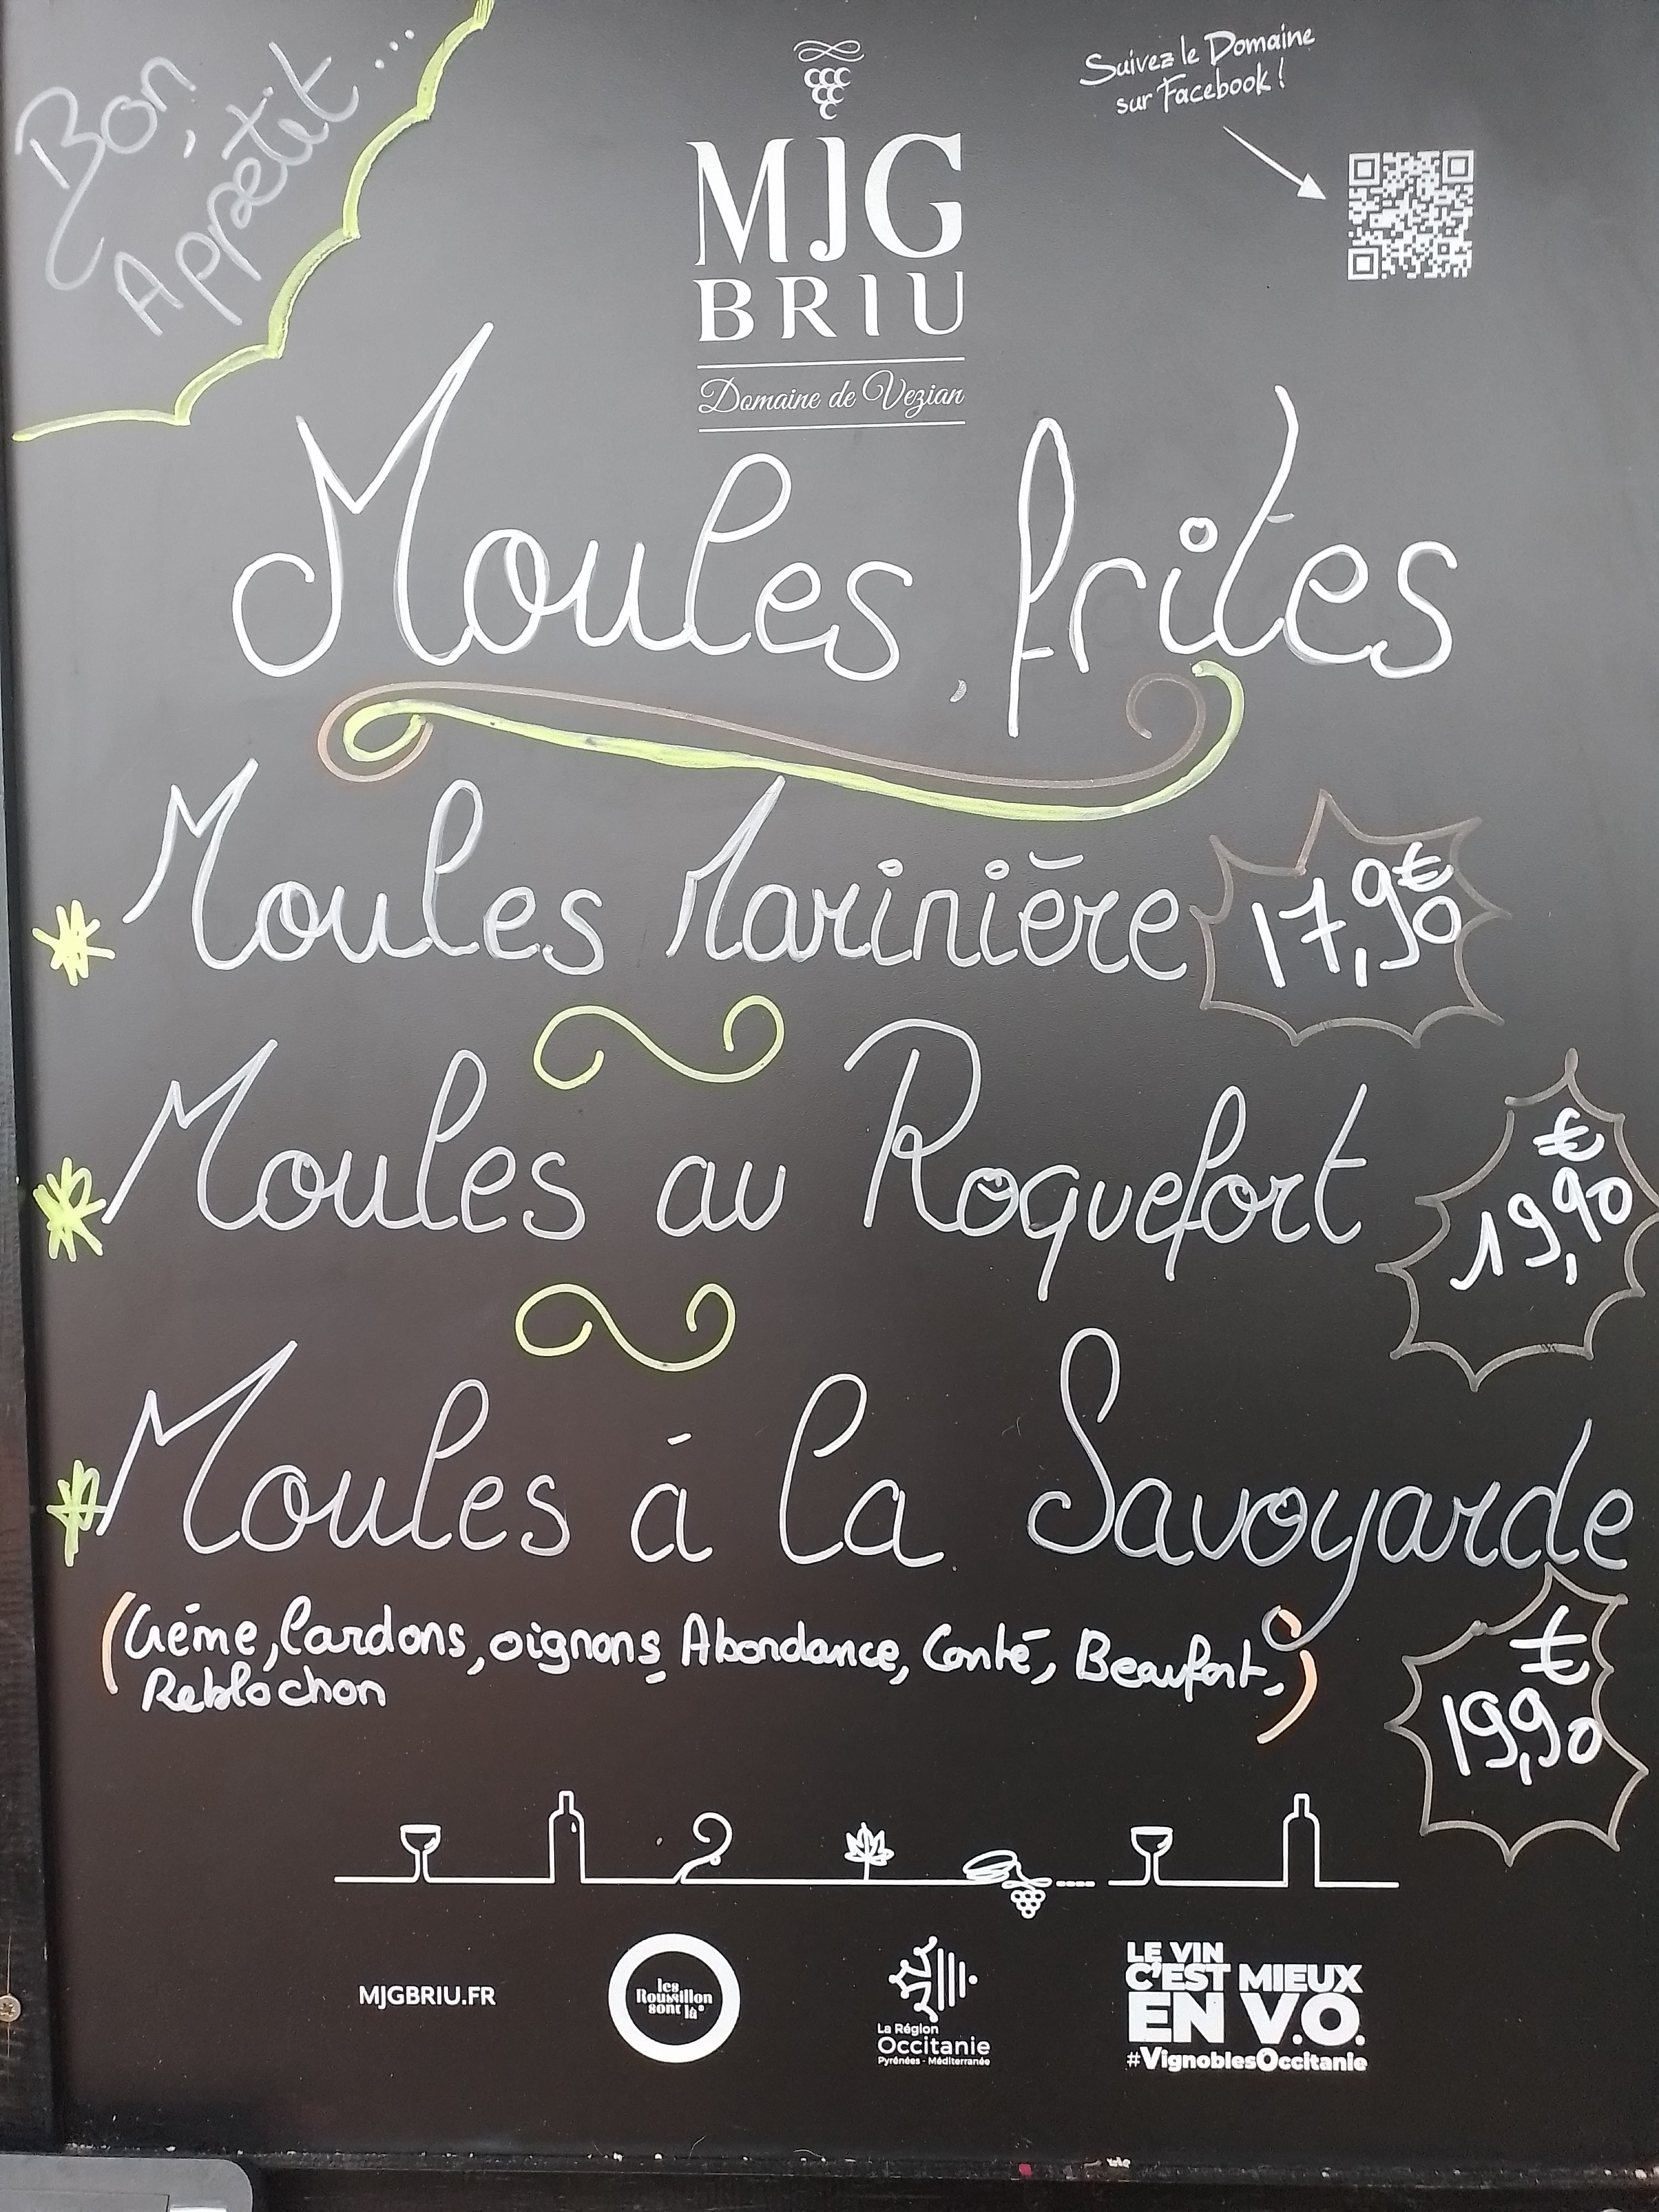 Bon
Appétit...
MJG
BRIU
Domaine de Vezian
Suivez le Domaine
sur Facebook !
Moules, frites
Moules Marinière 17,90€
Moules au Roquefort 19,90€
Moules à la Savoyarde
(Crème, lardons, oignons, Abondance, Conté, Beaufort,
Reblochon)
19,90€
MJGBRIU.FR
les
Roussillon
sont là
La Région
Occitanie
Pyrénées - Méditerranée
LE VIN
C'EST MIEUX
EN V.O.
#VignoblesOccitanie